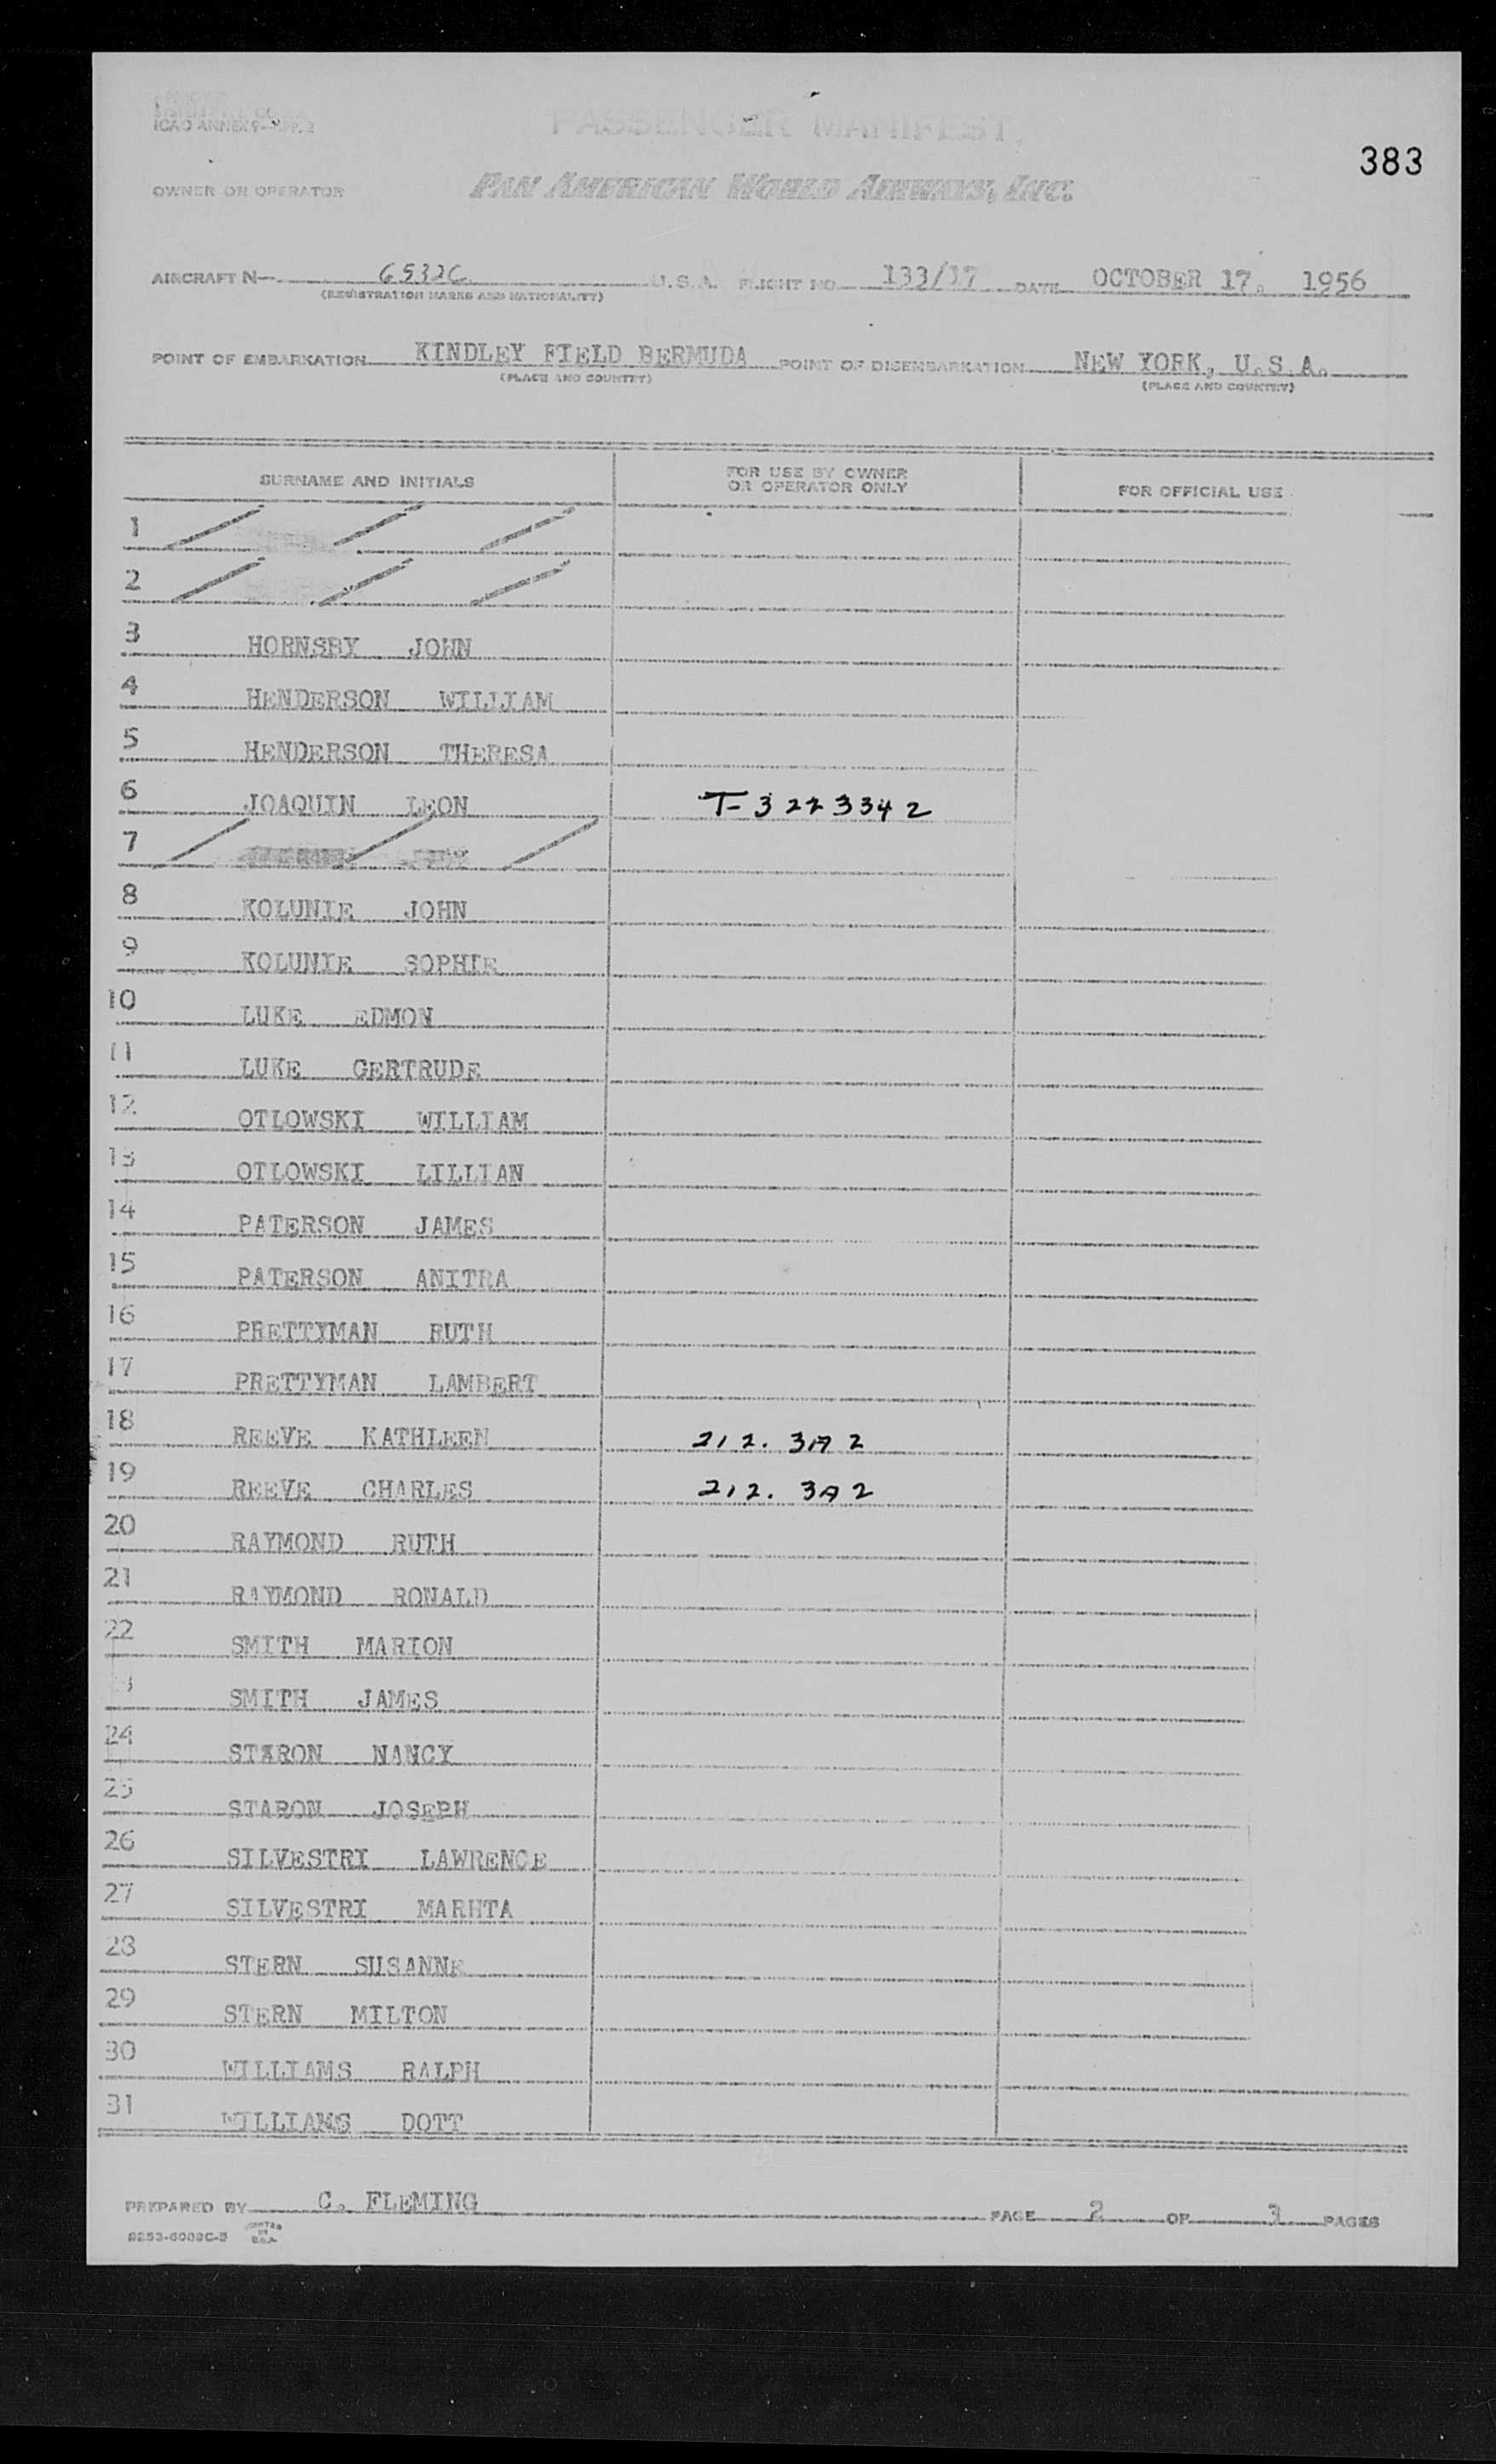 ICAO ANNEX 9-APP. 3
PASSENGER MANIFEST
383
OWNER OR OPERATOR PAN AMERICAN WORLD AIRWAYS, INC.
AIRCRAFT N- 6532C U.S.A. FLIGHT NO. 133/17 DATE OCTOBER 17. 1956
(REGISTRATION MARKS AND NATIONALITY)
POINT OF EMBARKATION KINDLEY FIELD BERMUDA POINT OF DISEMBARKATION NEW YORK, U.S.A.
(PLACE AND COUNTRY) (PLACE AND COUNTRY)
SURNAME AND INITIALS FOR USE BY OWNER OR OPERATOR ONLY FOR OFFICIAL USE
1
2
3 HORNSBY JOHN
4 HENDERSON WILLIAM
5 HENDERSON THERESA
6 JOAQUIN LEON T-3223342
7
8 KOLUNIE JOHN
9 KOLUNIE SOPHIE
10 LUKE EDMON
11 LUKE GERTRUDE
12 OTLOWSKI WILLIAM
13 OTLOWSKI LILLIAN
14 PATERSON JAMES
15 PATERSON ANITRA
16 PRETTYMAN RUTH
17 PRETTYMAN LAMBERT
18 REEVE KATHLEEN 212. 3A2
19 REEVE CHARLES 212. 3A2
20 RAYMOND RUTH
21 RAYMOND RONALD
22 SMITH MARION
SMITH JAMES
24 STARON NANCY
25 STARON JOSEPH
26 SILVESTRI LAWRENCE
27 SILVESTRI MARHTA
28 STERN SUSANNE
29 STERN MILTON
30 WILLIAMS RALPH
31 WILLIAMS DOTT
PREPARED BY C. FLEMING PAGE 2 OF 3 PAGES
PRINTED IN U.S.A.